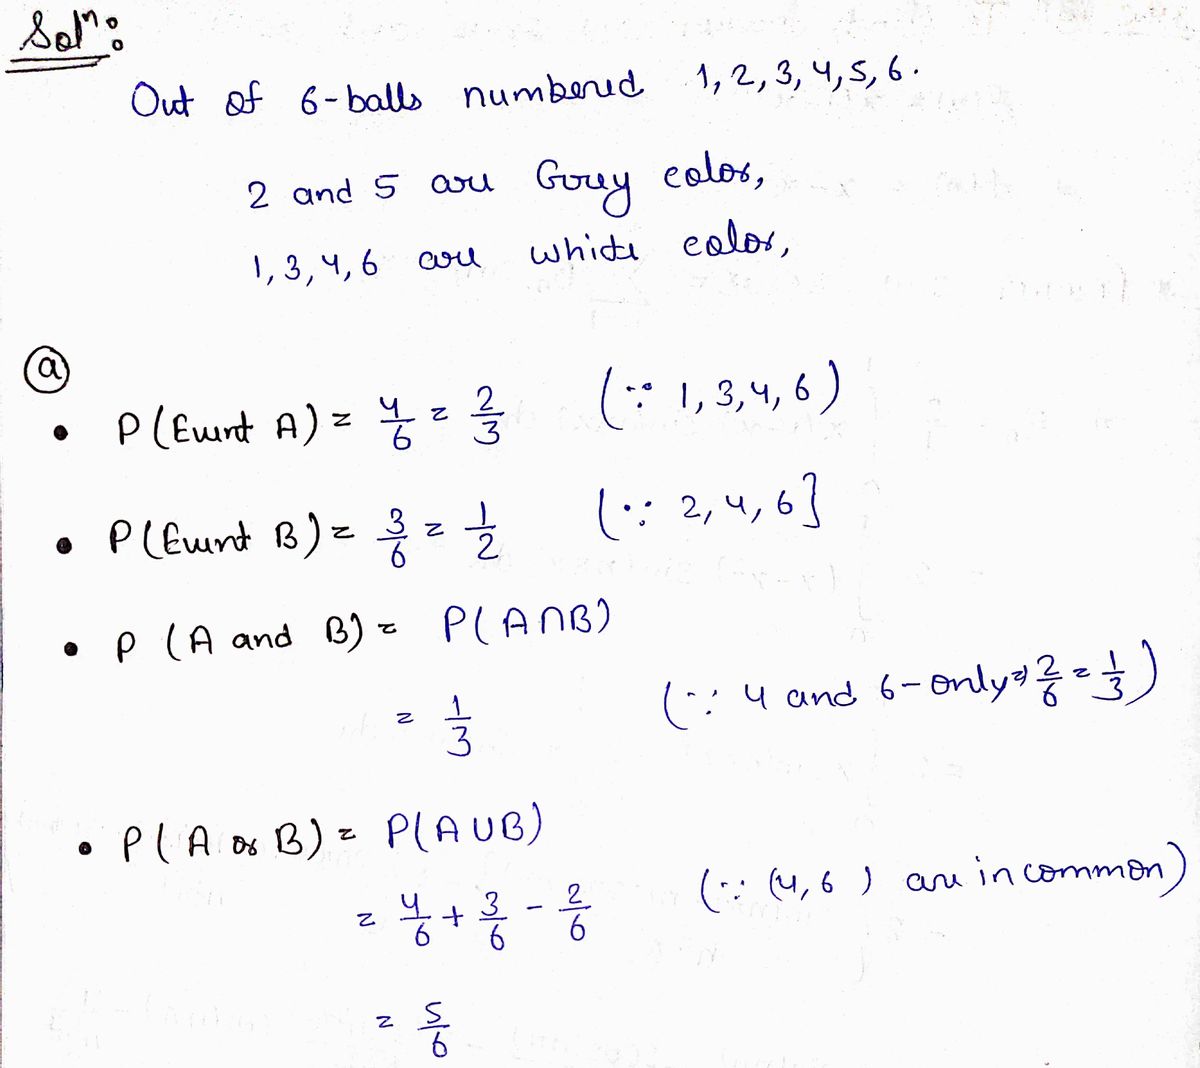 Solⁿ:
Out of 6-balls numbered 1, 2, 3, 4, 5, 6.
2 and 5 are Grey color,
1, 3, 4, 6 are white color,
(a)
• P(Event A) = 4/6 = 2/3 (∵ 1, 3, 4, 6)
• P(Event B) = 3/6 = 1/2 (∵ 2, 4, 6]
• P (A and B) = P(A∩B)
= 1/3 (∵ 4 and 6-only ⇒ 2/6 = 1/3)
• P(A or B) = P(A∪B)
= 4/6 + 3/6 - 2/6 (∵ (4, 6) are in common)
= 5/6